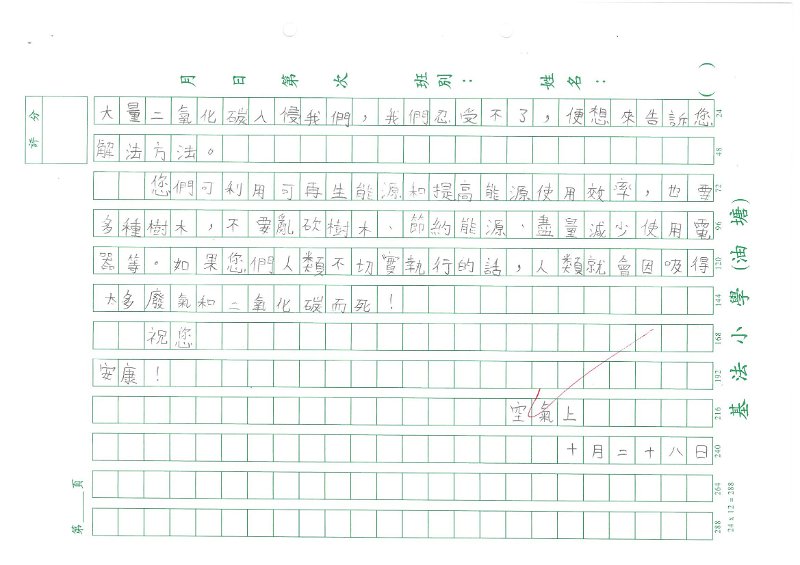 月 日 第 次 班別： 姓名： （ ）
評分
大量二氧化碳入侵我們，我們忍受不了，便想來告訴您 24
解法方法。 48
您們可利用可再生能源和提高能源使用效率，也要 72
多種樹木，不要亂砍樹木、節約能源、盡量減少使用電 96
器等。如果您們人類不切實執行的話，人類就會因吸得 120
大多廢氣和二氧化碳而死！ 144
祝您 168
安康！ 192
空氣上 216
十月二十八日 240
264
288
24 x 12 = 288
基法小學（油塘）
第 頁